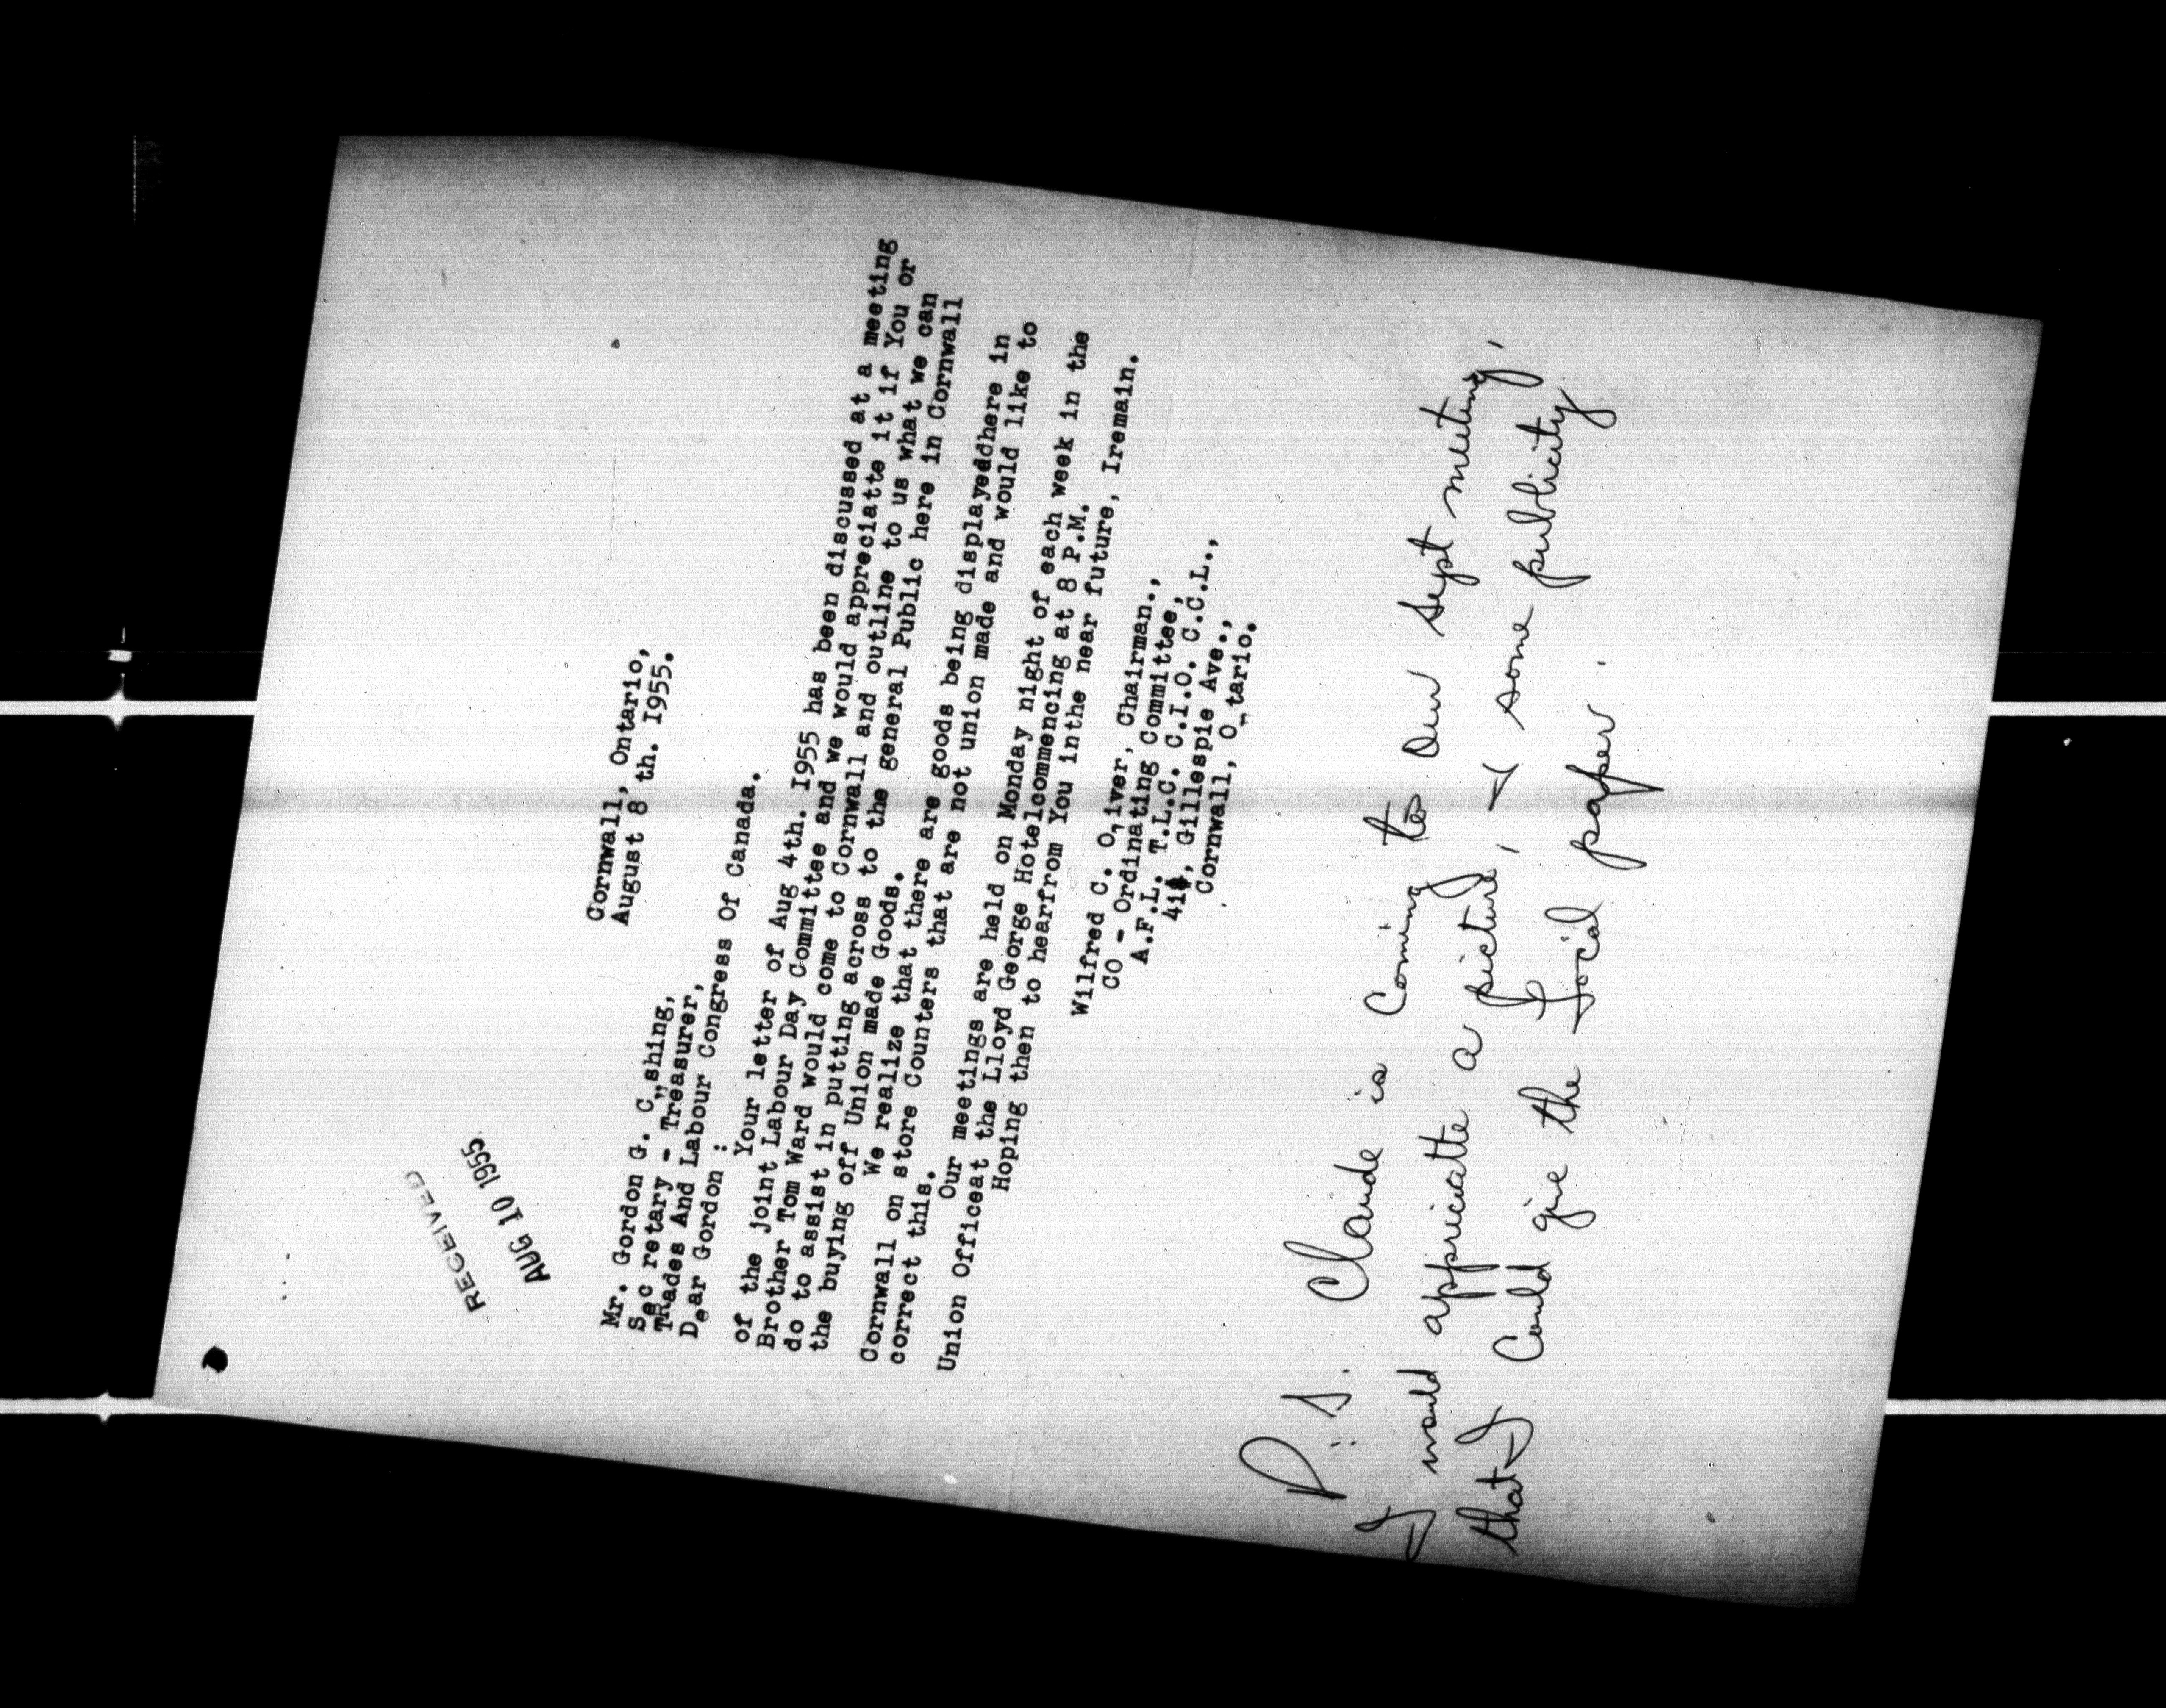 RECEIVED
AUG 10 1955
Cornwall, Ontario,
August 8 th. I955.
Mr. Gordon G. C„shing,
Sec retary - Treasurer,
TRades And Labour Congress Of Canada.
Dear Gordon :
Your letter of Aug 4th. I955 has been discussed at a meeting
of the Joint Labour Day Committee and we would appreciatte it if You or
Brother Tom Ward would come to Cornwall and outline to us what we can
do to assist in putting across to the general Public here in Cornwall
the buying off Union made Goods.
We realize that there are goods being displayeddhere in
Cornwall on store Counters that are not union made and would like to
correct this.
Our meetings are held on Monday night of each week in the
Union Officeat the Lloyd George Hotelcommencing at 8 P.M.
Hoping then to hearfrom You inthe near future, Iremain.
Wilfred C. O,iver, Chairman.,
CO - Ordinating Committee,
A.F.L. T.L.C. C.I.O. C.C.L.,
Gillespie Ave.,
Cornwall, O„tario.
P.S. Claude is Coming to Our Sept meeting,
I would appriciatte a picture, & some publicity
that I Could give the local paper.